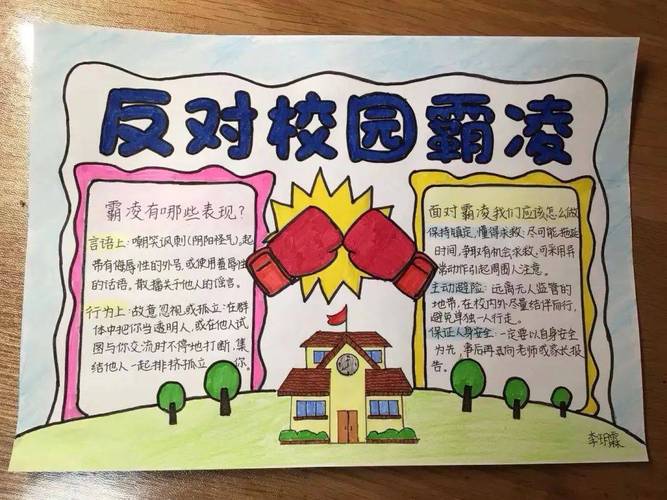 反对校园霸凌
霸凌有哪些表现?
言语上:嘲笑讽刺(阴阳怪气),起
带有侮辱性的外号,或使用羞辱性
的话语,散播关于他人的谣言
行为上:故意忽视,或孤立:在群
体中把你当透明人,或在他人试
图与你交流时不停地打断,集
结他人一起排挤孤立 你。
面对霸凌我们应该怎么做
保持镇定,懂得求救:尽可能拖延
时间,争取有机会求救,可采用异
常动作引起周围人注意。
主动避险:远离无人监管的
地带,在校内外尽量结伴而行,
避免单独一人行走。
保证人身安全:一定要以自身安全
为先,事后再去向老师或家长报
告。
李玥霖